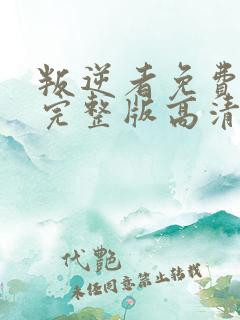 叛逆者免费
完整版高清
代艳
未经同意禁止转载